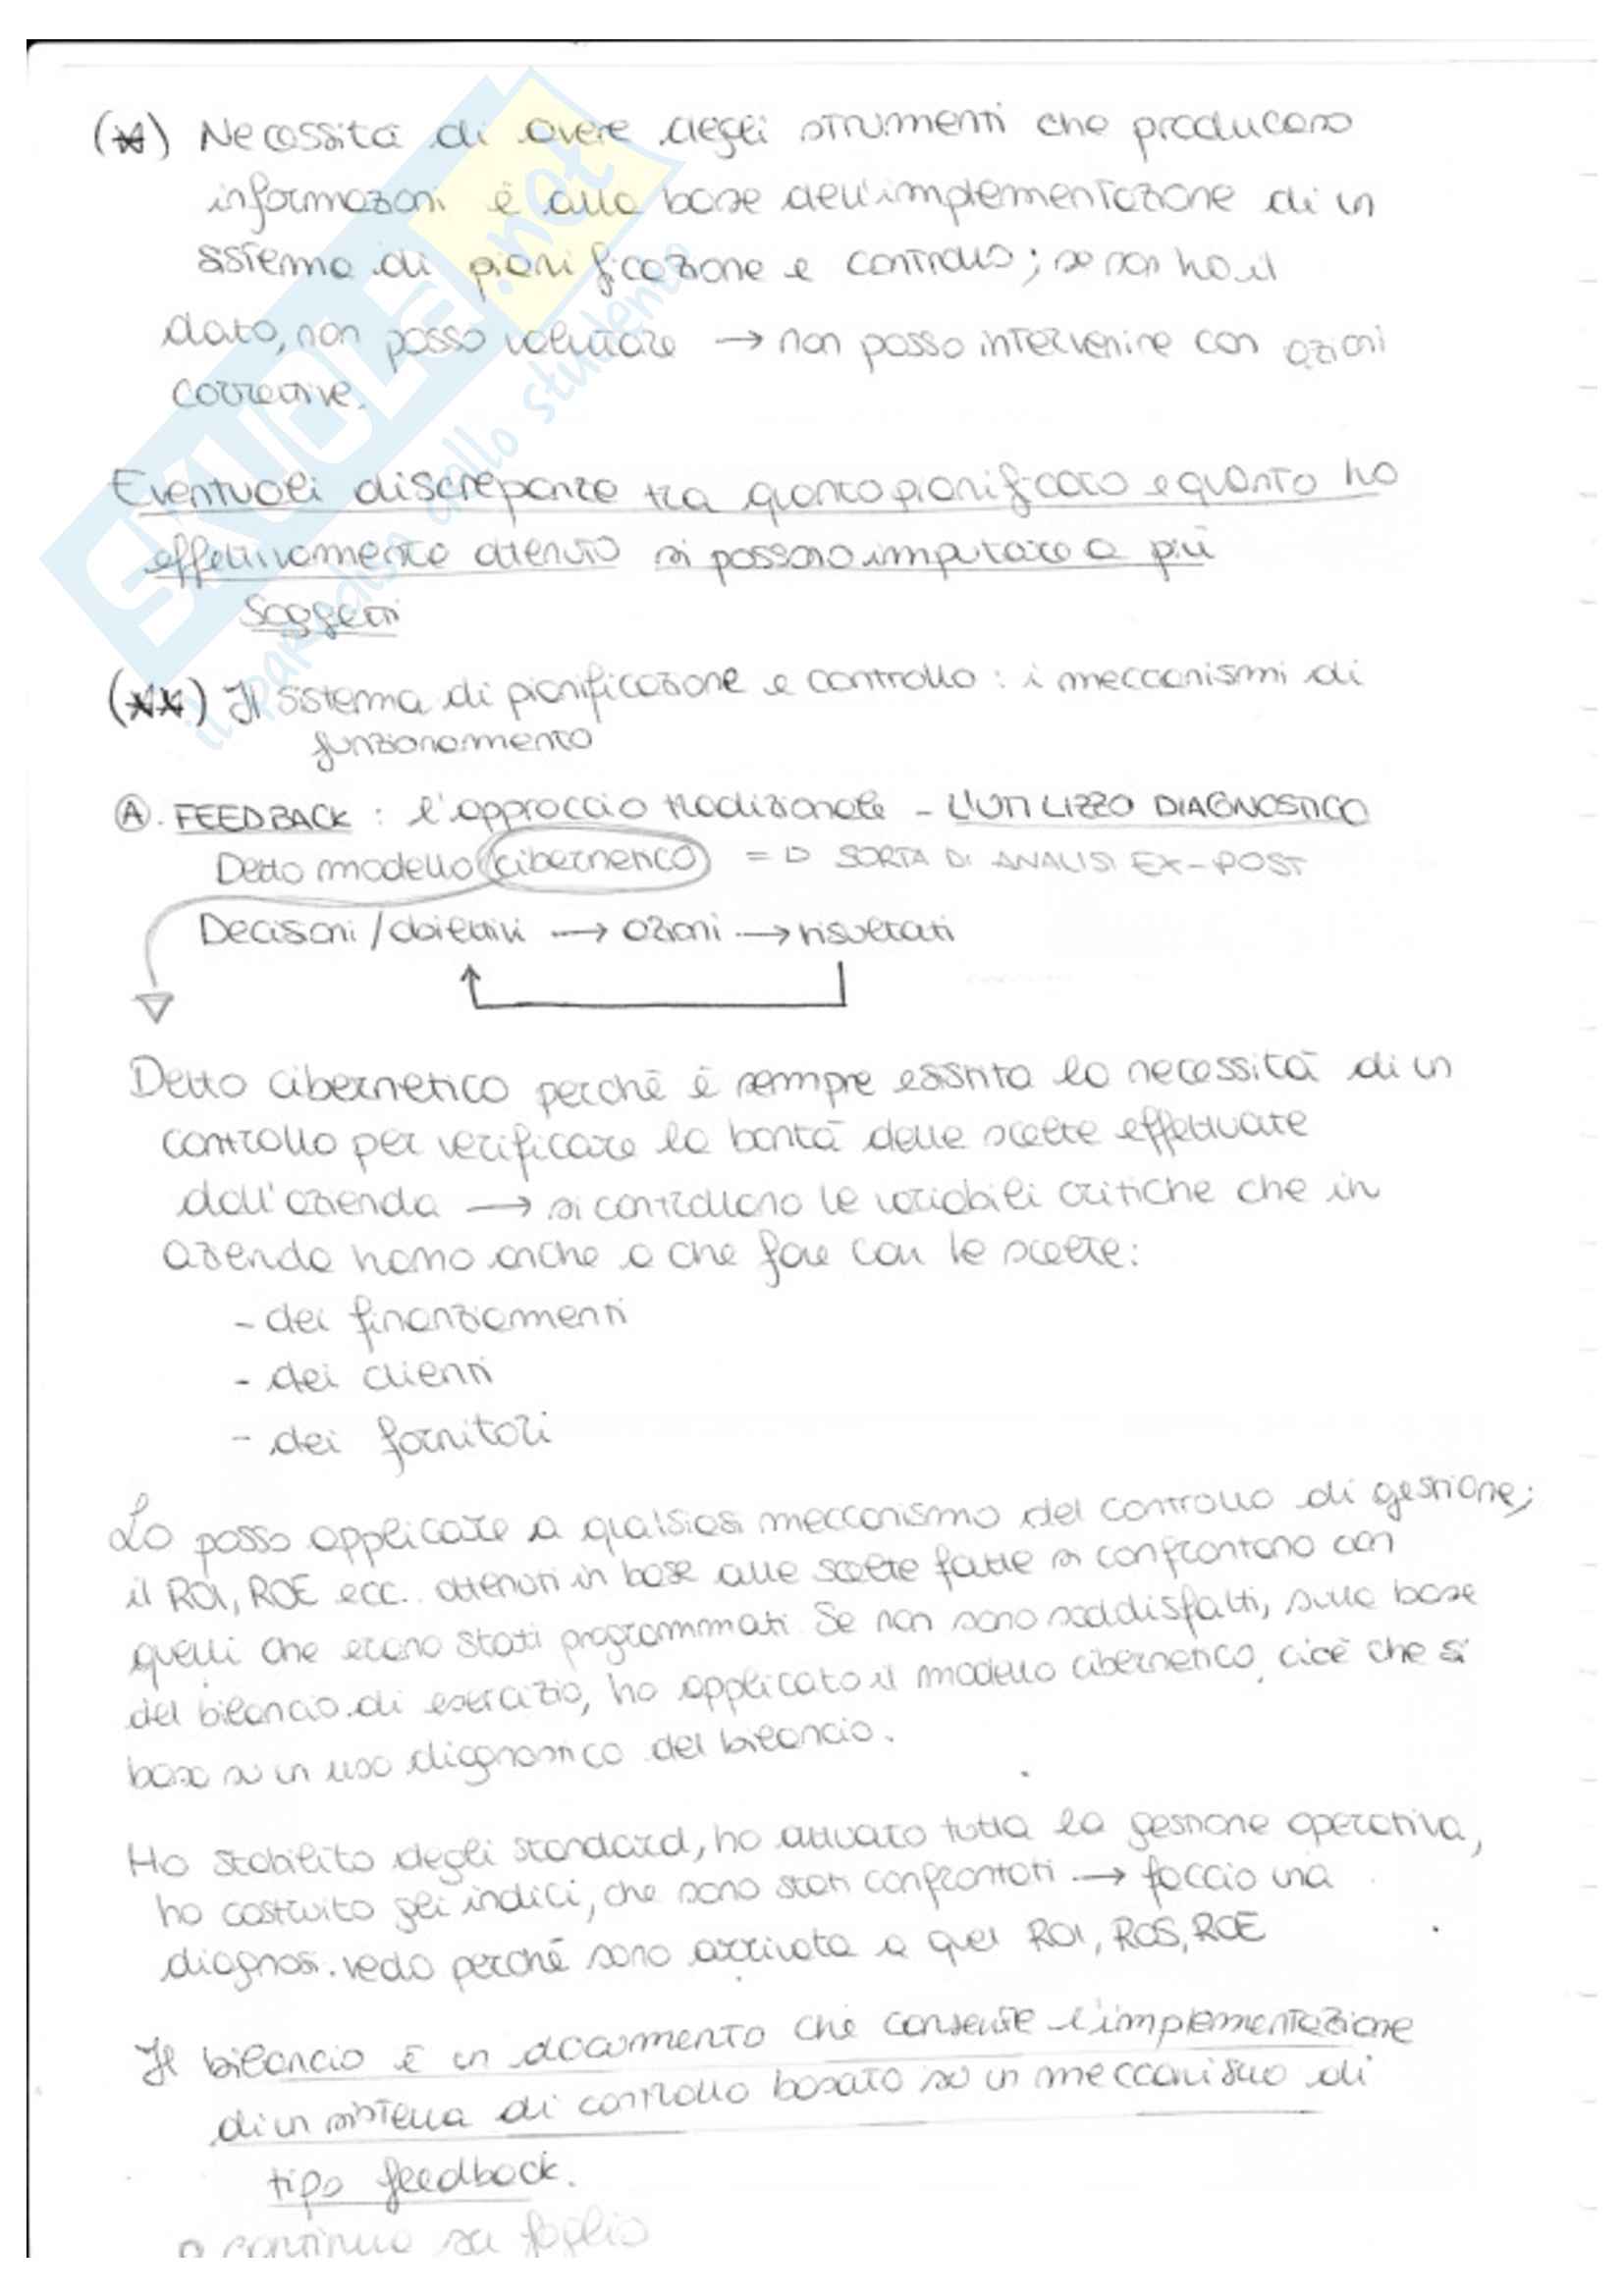 (*) Necessità di avere degli strumenti che producano
informazioni è alla base dell'implementazione di un
sistema di pianificazione e controllo; se non ho il
dato, non posso valutare → non posso intervenire con azioni
correttive.
Eventuali discrepanze tra quanto pianificato e quanto ho
effettivamente ottenuto si possono imputare a più
soggetti
(**) Il sistema di pianificazione e controllo: i meccanismi di
funzionamento
Ⓐ. FEEDBACK: l'approccio tradizionale - L'UTILIZZO DIAGNOSTICO
Detto modello cibernetico => SORTA DI ANALISI EX-POST
Decisioni/obiettivi → azioni → risultati
Detto cibernetico perché è sempre esistita la necessità di un
controllo per verificare la bontà delle scelte effettuate
dall'azienda → si controllano le variabili critiche che in
azienda hanno anche a che fare con le scelte:
- dei finanziamenti
- dei clienti
- dei fornitori
Lo posso applicare a qualsiasi meccanismo del controllo di gestione;
il ROI, ROE ecc.. ottenuti in base alle scelte fatte si confrontano con
quelli che erano stati programmati. Se non sono soddisfatti, sulla base
del bilancio di esercizio, ho applicato il modello cibernetico, cioè che si
basa su un uso diagnostico del bilancio.
Ho stabilito degli standard, ho attuato tutta la gestione operativa,
ho costruito gli indici, che sono stati confrontati → faccio una
diagnosi. vedo perché sono arrivata a quel ROI, ROS, ROE
Il bilancio è un documento che consente l'implementazione
di un sistema di controllo basato su un meccanismo di
tipo feedback.
continua su foglio
SKUOLA.net
il paradiso dello studente